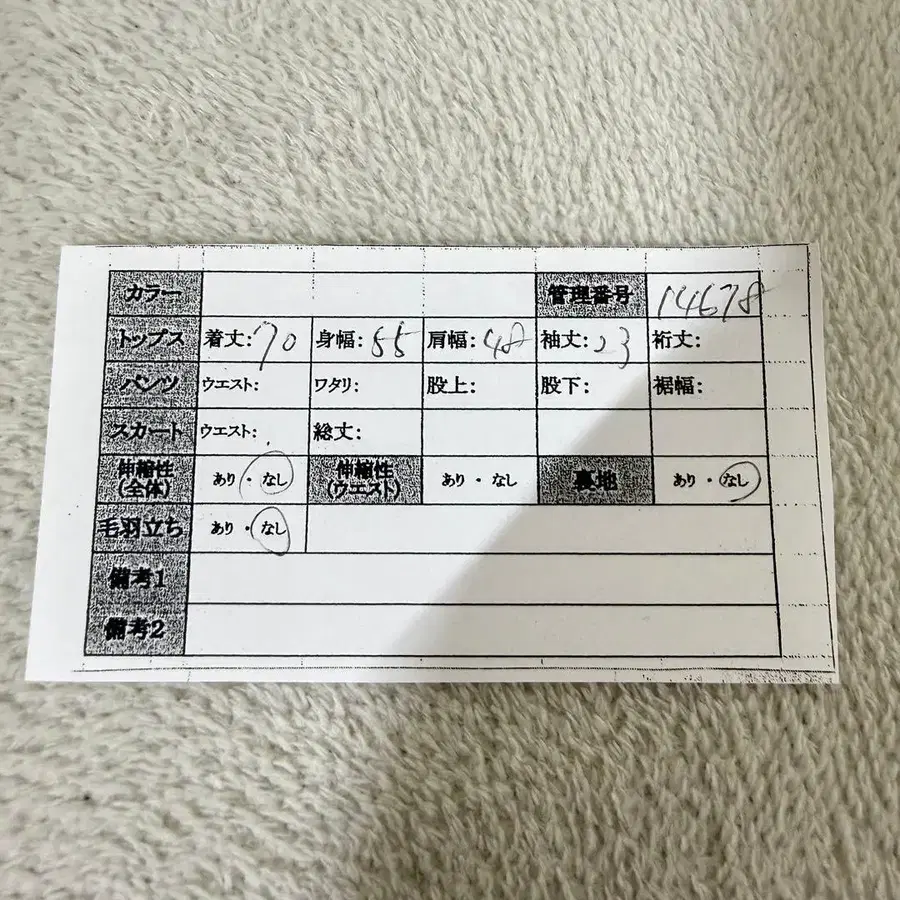 カラー 管理番号 14678
トップス 着丈:70 身幅:55 肩幅:48 袖丈:23 裄丈:
パンツ ウエスト: ワタリ: 股上: 股下: 裾幅:
スカート ウエスト: 総丈:
伸縮性(全体) あり・なし 伸縮性(ウエスト) あり・なし 裏地 あり・なし
毛羽立ち あり・なし
備考1
備考2